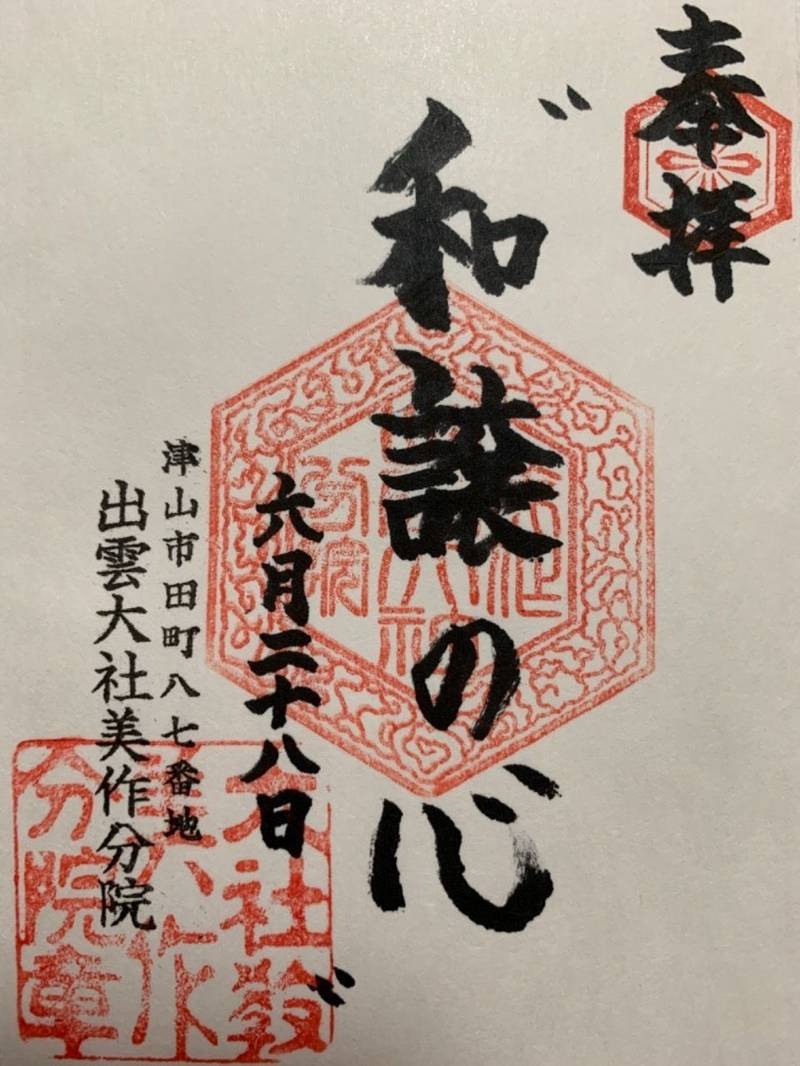 奉拝
〝和譲の心〟
六月二十八日
津山市田町八七番地
出雲大社美作分院
大社教
美作
分院章